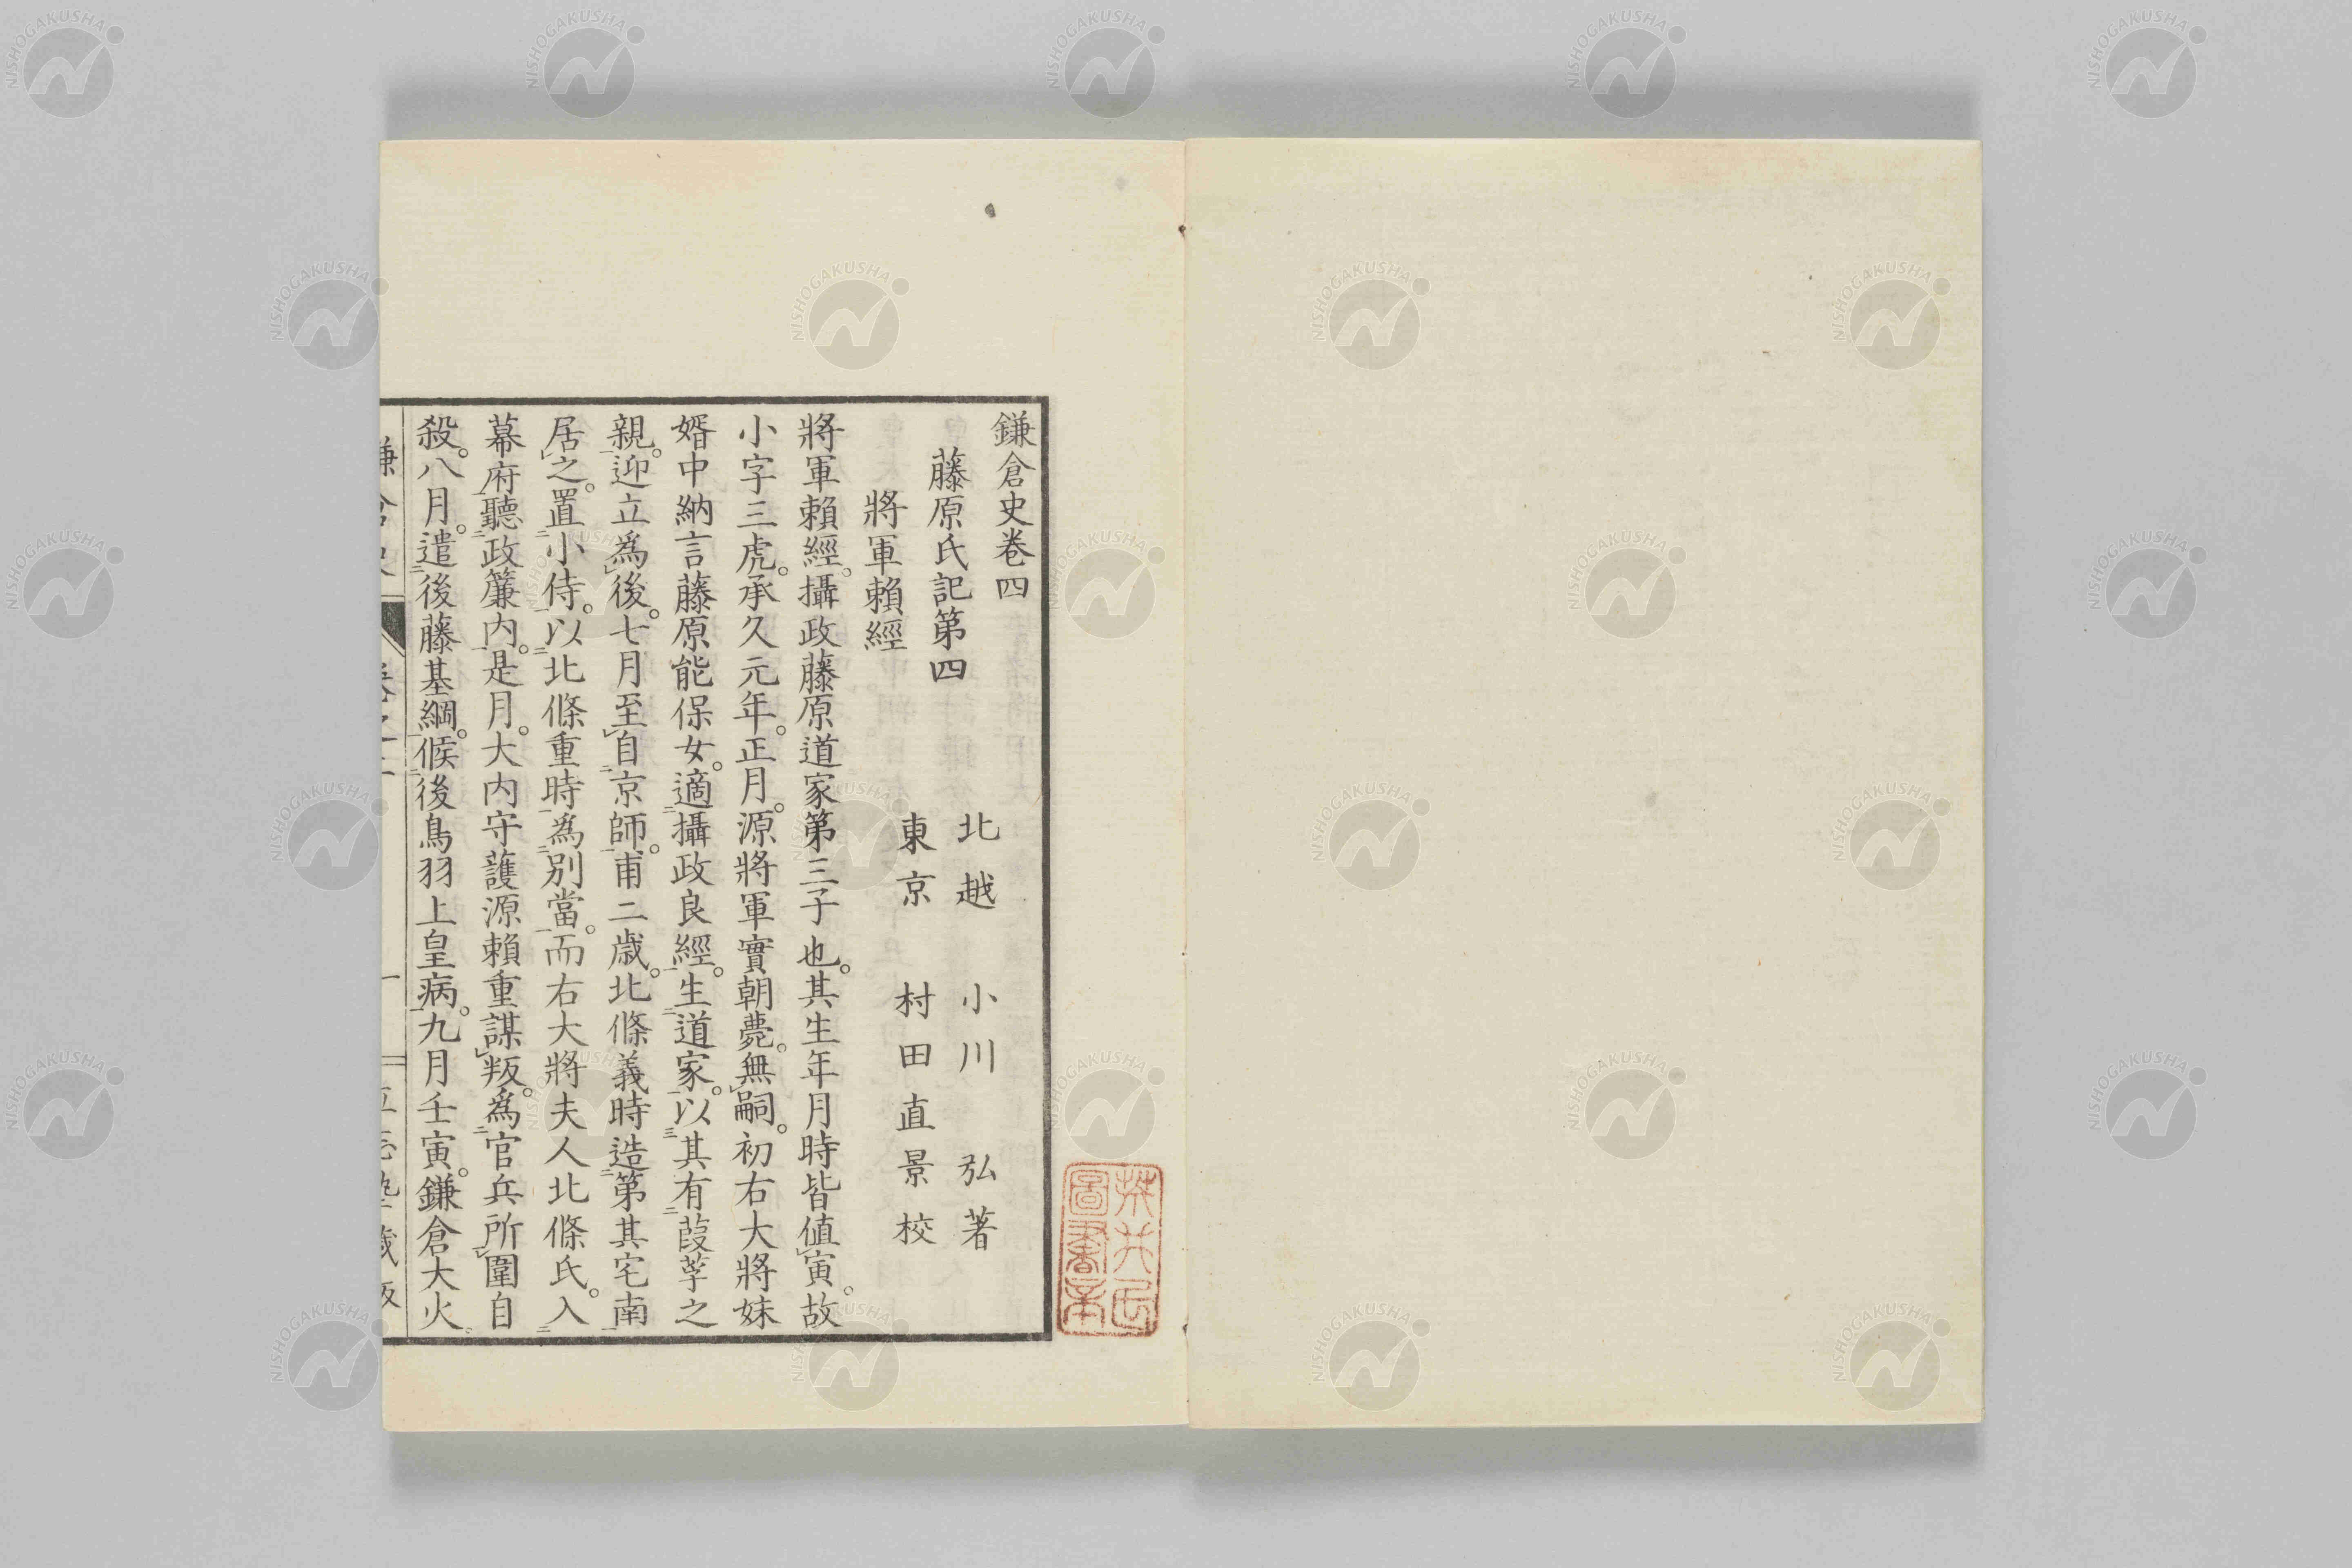 鎌倉史卷四
北越 小川 弘著
藤原氏記第四
東京 村田直景校
將軍賴經
將軍賴經。攝政藤原道家第三子也。其生年月時皆値寅。故
小字三虎。承久元年。正月。源將軍實朝薨。無嗣。初右大將妹
婿中納言藤原能保女。適攝政良經。生道家。以其有葭莩之
親。迎立爲後。七月至自京師。甫二歲。北條義時造第其宅南
居之。置小侍。以北條重時爲別當。而右大將夫人北條氏。入
幕府聽政簾内。是月。大内守護源賴重謀叛。爲官兵所圍自
殺。八月。遣後藤基綱。候後鳥羽上皇病。九月壬寅。鎌倉大火
NISHOGAKUSHA